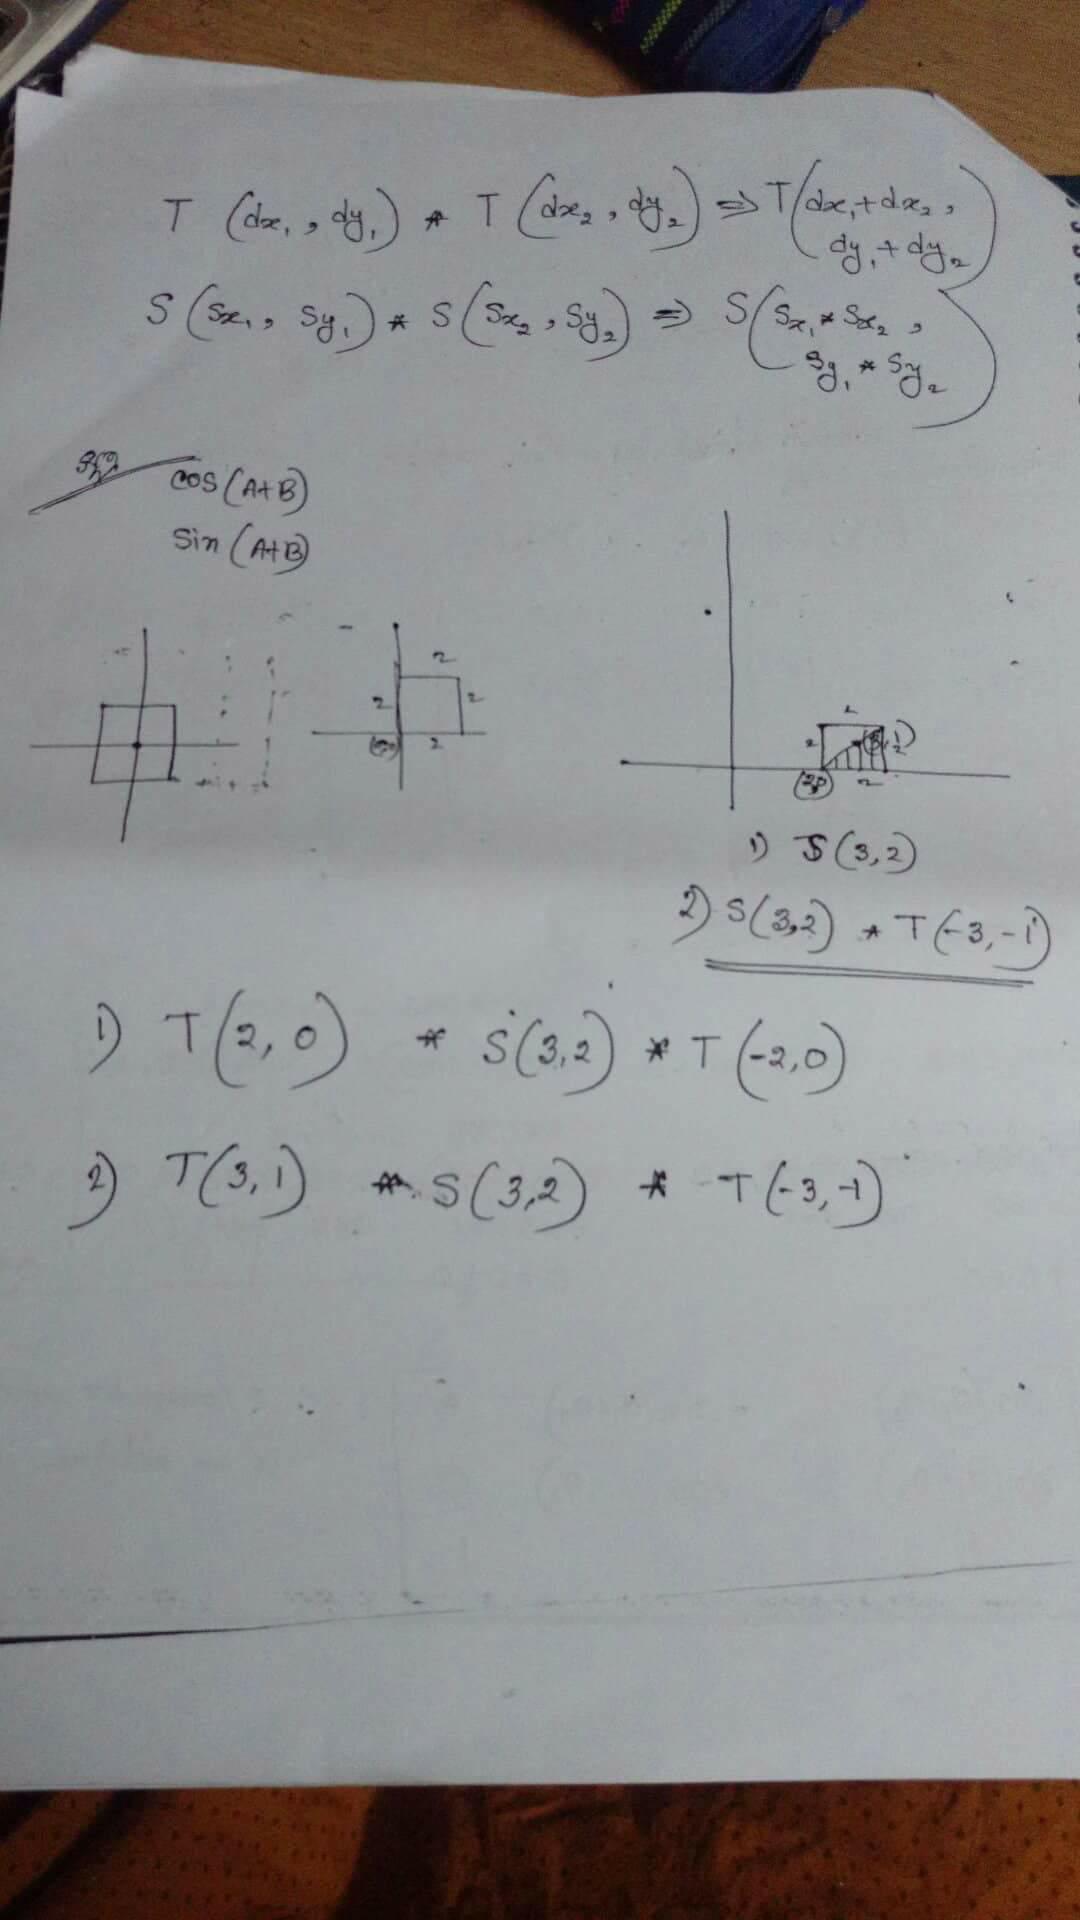 T (dx₁, dy₁) * T (dx₂, dy₂) ⇒ T(dx₁ + dx₂,
dy₁ + dy₂)
S (Sx₁, Sy₁) * S (Sx₂, Sy₂) ⇒ S (Sx₁ * Sx₂,
Sy₁ * Sy₂)
cos (A+B)
Sin (A+B)
2
2
2
2
2
2
2
1) S(3,2)
2) S(3,2) * T(-3,-1)
1) T(2, 0) * S(3,2) * T(-2,0)
2) T(3,1) * S(3,2) * T(-3,-1)